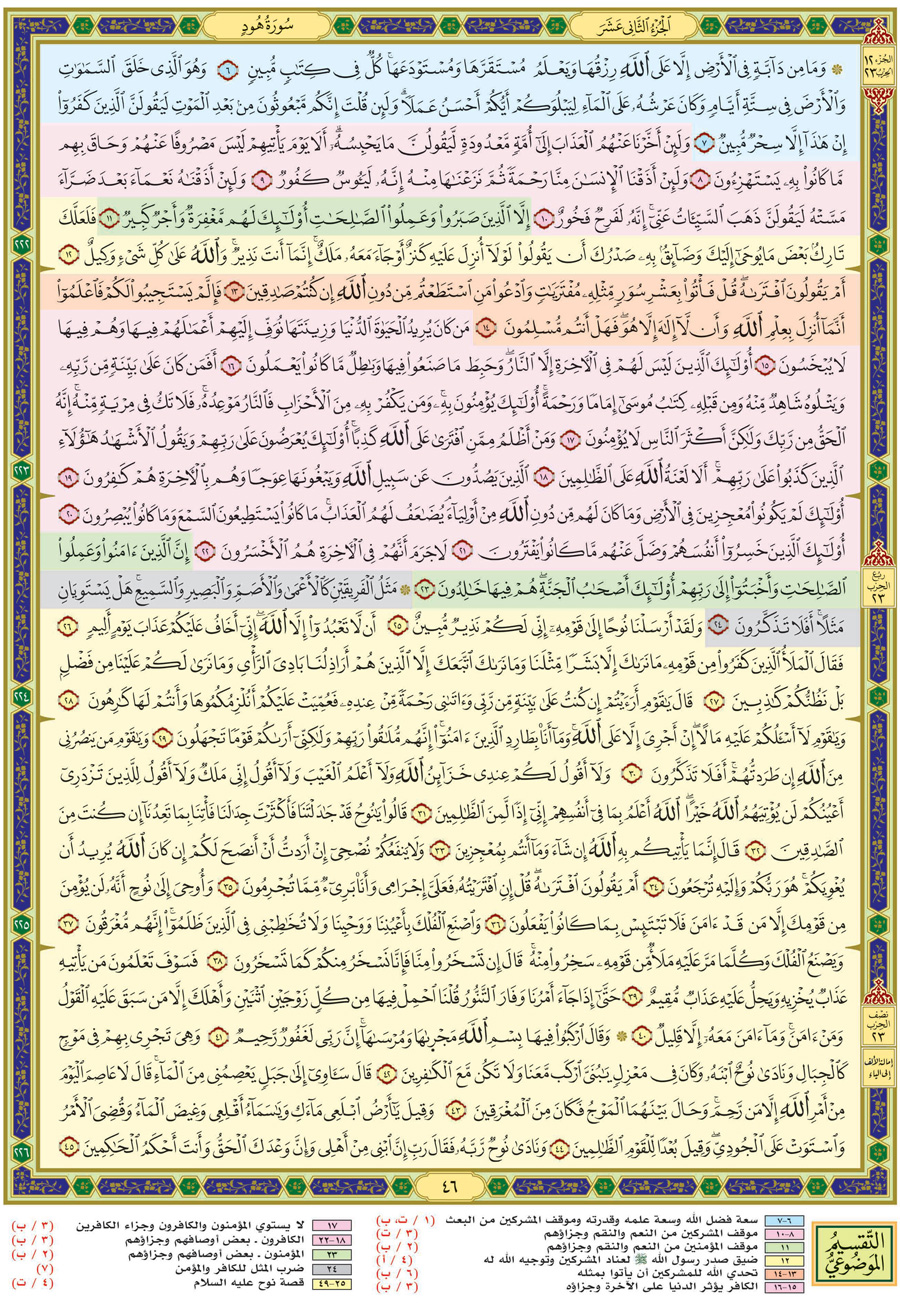 الجُزْءُ الثَّانِي عَشَرَ
سُورَةُ هُودٍ
الجزء ١٢
الحزب ٢٣
۞ وَمَا مِن دَآبَّةٍ فِي ٱلْأَرْضِ إِلَّا عَلَى ٱللَّهِ رِزْقُهَا وَيَعْلَمُ مُسْتَقَرَّهَا وَمُسْتَوْدَعَهَا ۚ كُلٌّ فِي كِتَٰبٍ مُّبِينٍ ٦ وَهُوَ ٱلَّذِي خَلَقَ ٱلسَّمَٰوَٰتِ
وَٱلْأَرْضَ فِي سِتَّةِ أَيَّامٍ وَكَانَ عَرْشُهُۥ عَلَى ٱلْمَآءِ لِيَبْلُوَكُمْ أَيُّكُمْ أَحْسَنُ عَمَلًا ۗ وَلَئِن قُلْتَ إِنَّكُم مَّبْعُوثُونَ مِنۢ بَعْدِ ٱلْمَوْتِ لَيَقُولَنَّ ٱلَّذِينَ كَفَرُوٓا۟
إِنْ هَٰذَآ إِلَّا سِحْرٌ مُّبِينٌ ٧ وَلَئِنْ أَخَّرْنَا عَنْهُمُ ٱلْعَذَابَ إِلَىٰٓ أُمَّةٍ مَّعْدُودَةٍ لَّيَقُولُنَّ مَا يَحْبِسُهُۥٓ ۗ أَلَا يَوْمَ يَأْتِيهِمْ لَيْسَ مَصْرُوفًا عَنْهُمْ وَحَاقَ بِهِم
مَّا كَانُوا۟ بِهِۦ يَسْتَهْزِءُونَ ٨ وَلَئِنْ أَذَقْنَا ٱلْإِنسَٰنَ مِنَّا رَحْمَةً ثُمَّ نَزَعْنَٰهَا مِنْهُ إِنَّهُۥ لَيَـُٔوسٌ كَفُورٌ ٩ وَلَئِنْ أَذَقْنَٰهُ نَعْمَآءَ بَعْدَ ضَرَّآءَ
مَسَّتْهُ لَيَقُولَنَّ ذَهَبَ ٱلسَّيِّـَٔاتُ عَنِّيٓ ۚ إِنَّهُۥ لَفَرِحٌ فَخُورٌ ١٠ إِلَّا ٱلَّذِينَ صَبَرُوا۟ وَعَمِلُوا۟ ٱلصَّٰلِحَٰتِ أُو۟لَٰٓئِكَ لَهُم مَّغْفِرَةٌ وَأَجْرٌ كَبِيرٌ ١١ فَلَعَلَّكَ
تَارِكٌۢ بَعْضَ مَا يُوحَىٰٓ إِلَيْكَ وَضَآئِقٌۢ بِهِۦ صَدْرُكَ أَن يَقُولُوا۟ لَوْلَآ أُنزِلَ عَلَيْهِ كَنزٌ أَوْ جَآءَ مَعَهُۥ مَلَكٌ ۚ إِنَّمَآ أَنتَ نَذِيرٌ ۚ وَٱللَّهُ عَلَىٰ كُلِّ شَىْءٍ وَكِيلٌ ١٢
أَمْ يَقُولُونَ ٱفْتَرَىٰهُ ۖ قُلْ فَأْتُوا۟ بِعَشْرِ سُوَرٍ مِّثْلِهِۦ مُفْتَرَيَٰتٍ وَٱدْعُوا۟ مَنِ ٱسْتَطَعْتُم مِّن دُونِ ٱللَّهِ إِن كُنتُمْ صَٰدِقِينَ ١٣ فَإِلَّمْ يَسْتَجِيبُوا۟ لَكُمْ فَٱعْلَمُوٓا۟
أَنَّمَآ أُنزِلَ بِعِلْمِ ٱللَّهِ وَأَن لَّآ إِلَٰهَ إِلَّا هُوَ ۖ فَهَلْ أَنتُم مُّسْلِمُونَ ١٤ مَن كَانَ يُرِيدُ ٱلْحَيَوٰةَ ٱلدُّنْيَا وَزِينَتَهَا نُوَفِّ إِلَيْهِمْ أَعْمَٰلَهُمْ فِيهَا وَهُمْ فِيهَا
لَا يُبْخَسُونَ ١٥ أُو۟لَٰٓئِكَ ٱلَّذِينَ لَيْسَ لَهُمْ فِي ٱلْءَاخِرَةِ إِلَّا ٱلنَّارُ ۖ وَحَبِطَ مَا صَنَعُوا۟ فِيهَا وَبَٰطِلٌ مَّا كَانُوا۟ يَعْمَلُونَ ١٦ أَفَمَن كَانَ عَلَىٰ بَيِّنَةٍ مِّن رَّبِّهِۦ
وَيَتْلُوهُ شَاهِدٌ مِّنْهُ وَمِن قَبْلِهِۦ كِتَٰبُ مُوسَىٰٓ إِمَامًا وَرَحْمَةً ۚ أُو۟لَٰٓئِكَ يُؤْمِنُونَ بِهِۦ ۚ وَمَن يَكْفُرْ بِهِۦ مِنَ ٱلْأَحْزَابِ فَٱلنَّارُ مَوْعِدُهُۥ ۚ فَلَا تَكُ فِي مِرْيَةٍ مِّنْهُ ۚ إِنَّهُ
ٱلْحَقُّ مِن رَّبِّكَ وَلَٰكِنَّ أَكْثَرَ ٱلنَّاسِ لَا يُؤْمِنُونَ ١٧ وَمَنْ أَظْلَمُ مِمَّنِ ٱفْتَرَىٰ عَلَى ٱللَّهِ كَذِبًا ۚ أُو۟لَٰٓئِكَ يُعْرَضُونَ عَلَىٰ رَبِّهِمْ وَيَقُولُ ٱلْأَشْهَٰدُ هَٰٓؤُلَآءِ
ٱلَّذِينَ كَذَبُوا۟ عَلَىٰ رَبِّهِمْ ۚ أَلَا لَعْنَةُ ٱللَّهِ عَلَى ٱلظَّٰلِمِينَ ١٨ ٱلَّذِينَ يَصُدُّونَ عَن سَبِيلِ ٱللَّهِ وَيَبْغُونَهَا عِوَجًا وَهُم بِٱلْءَاخِرَةِ هُمْ كَٰفِرُونَ ١٩
أُو۟لَٰٓئِكَ لَمْ يَكُونُوا۟ مُعْجِزِينَ فِي ٱلْأَرْضِ وَمَا كَانَ لَهُم مِّن دُونِ ٱللَّهِ مِنْ أَوْلِيَآءَ ۘ يُضَٰعَفُ لَهُمُ ٱلْعَذَابُ ۚ مَا كَانُوا۟ يَسْتَطِيعُونَ ٱلسَّمْعَ وَمَا كَانُوا۟ يُبْصِرُونَ ٢٠
أُو۟لَٰٓئِكَ ٱلَّذِينَ خَسِرُوٓا۟ أَنفُسَهُمْ وَضَلَّ عَنْهُم مَّا كَانُوا۟ يَفْتَرُونَ ٢١ لَا جَرَمَ أَنَّهُمْ فِي ٱلْءَاخِرَةِ هُمُ ٱلْأَخْسَرُونَ ٢٢ إِنَّ ٱلَّذِينَ ءَامَنُوا۟ وَعَمِلُوا۟
ٱلصَّٰلِحَٰتِ وَأَخْبَتُوٓا۟ إِلَىٰ رَبِّهِمْ أُو۟لَٰٓئِكَ أَصْحَٰبُ ٱلْجَنَّةِ ۖ هُمْ فِيهَا خَٰلِدُونَ ٢٣ ۞ مَثَلُ ٱلْفَرِيقَيْنِ كَٱلْأَعْمَىٰ وَٱلْأَصَمِّ وَٱلْبَصِيرِ وَٱلسَّمِيعِ ۚ هَلْ يَسْتَوِيَانِ
مَثَلًا ۚ أَفَلَا تَذَكَّرُونَ ٢٤ وَلَقَدْ أَرْسَلْنَا نُوحًا إِلَىٰ قَوْمِهِۦٓ إِنِّي لَكُمْ نَذِيرٌ مُّبِينٌ ٢٥ أَن لَّا تَعْبُدُوٓا۟ إِلَّا ٱللَّهَ ۖ إِنِّيٓ أَخَافُ عَلَيْكُمْ عَذَابَ يَوْمٍ أَلِيمٍ ٢٦
فَقَالَ ٱلْمَلَأُ ٱلَّذِينَ كَفَرُوا۟ مِن قَوْمِهِۦ مَا نَرَىٰكَ إِلَّا بَشَرًا مِّثْلَنَا وَمَا نَرَىٰكَ ٱتَّبَعَكَ إِلَّا ٱلَّذِينَ هُمْ أَرَاذِلُنَا بَادِيَ ٱلرَّأْيِ وَمَا نَرَىٰ لَكُمْ عَلَيْنَا مِن فَضْلٍۭ
بَلْ نَظُنُّكُمْ كَٰذِبِينَ ٢٧ قَالَ يَٰقَوْمِ أَرَءَيْتُمْ إِن كُنتُ عَلَىٰ بَيِّنَةٍ مِّن رَّبِّي وَءَاتَىٰنِي رَحْمَةً مِّنْ عِندِهِۦ فَعُمِّيَتْ عَلَيْكُمْ أَنُلْزِمُكُمُوهَا وَأَنتُمْ لَهَا كَٰرِهُونَ ٢٨
وَيَٰقَوْمِ لَآ أَسْـَٔلُكُمْ عَلَيْهِ مَالًا ۖ إِنْ أَجْرِيَ إِلَّا عَلَى ٱللَّهِ ۚ وَمَآ أَنَا۠ بِطَارِدِ ٱلَّذِينَ ءَامَنُوٓا۟ ۚ إِنَّهُم مُّلَٰقُوا۟ رَبِّهِمْ وَلَٰكِنِّيٓ أَرَىٰكُمْ قَوْمًا تَجْهَلُونَ ٢٩ وَيَٰقَوْمِ مَن يَنصُرُنِي
مِنَ ٱللَّهِ إِن طَرَدتُّهُمْ ۚ أَفَلَا تَذَكَّرُونَ ٣٠ وَلَآ أَقُولُ لَكُمْ عِندِي خَزَآئِنُ ٱللَّهِ وَلَآ أَعْلَمُ ٱلْغَيْبَ وَلَآ أَقُولُ إِنِّي مَلَكٌ وَلَآ أَقُولُ لِلَّذِينَ تَزْدَرِيٓ
أَعْيُنُكُمْ لَن يُؤْتِيَهُمُ ٱللَّهُ خَيْرًا ۖ ٱللَّهُ أَعْلَمُ بِمَا فِيٓ أَنفُسِهِمْ ۖ إِنِّيٓ إِذًا لَّمِنَ ٱلظَّٰلِمِينَ ٣١ قَالُوا۟ يَٰنُوحُ قَدْ جَٰدَلْتَنَا فَأَكْثَرْتَ جِدَٰلَنَا فَأْتِنَا بِمَا تَعِدُنَآ إِن كُنتَ مِنَ
ٱلصَّٰدِقِينَ ٣٢ قَالَ إِنَّمَا يَأْتِيكُم بِهِ ٱللَّهُ إِن شَآءَ وَمَآ أَنتُم بِمُعْجِزِينَ ٣٣ وَلَا يَنفَعُكُمْ نُصْحِيٓ إِنْ أَرَدتُّ أَنْ أَنصَحَ لَكُمْ إِن كَانَ ٱللَّهُ يُرِيدُ أَن
يُغْوِيَكُمْ ۚ هُوَ رَبُّكُمْ وَإِلَيْهِ تُرْجَعُونَ ٣٤ أَمْ يَقُولُونَ ٱفْتَرَىٰهُ ۖ قُلْ إِنِ ٱفْتَرَيْتُهُۥ فَعَلَيَّ إِجْرَامِي وَأَنَا۠ بَرِيٓءٌ مِّمَّا تُجْرِمُونَ ٣٥ وَأُوحِيَ إِلَىٰ نُوحٍ أَنَّهُۥ لَن يُؤْمِنَ
مِن قَوْمِكَ إِلَّا مَن قَدْ ءَامَنَ فَلَا تَبْتَئِسْ بِمَا كَانُوا۟ يَفْعَلُونَ ٣٦ وَٱصْنَعِ ٱلْفُلْكَ بِأَعْيُنِنَا وَوَحْيِنَا وَلَا تُخَٰطِبْنِي فِي ٱلَّذِينَ ظَلَمُوٓا۟ ۚ إِنَّهُم مُّغْرَقُونَ ٣٧
وَيَصْنَعُ ٱلْفُلْكَ وَكُلَّمَا مَرَّ عَلَيْهِ مَلَأٌ مِّن قَوْمِهِۦ سَخِرُوا۟ مِنْهُ ۚ قَالَ إِن تَسْخَرُوا۟ مِنَّا فَإِنَّا نَسْخَرُ مِنكُمْ كَمَا تَسْخَرُونَ ٣٨ فَسَوْفَ تَعْلَمُونَ مَن يَأْتِيهِ
عَذَابٌ يُخْزِيهِ وَيَحِلُّ عَلَيْهِ عَذَابٌ مُّقِيمٌ ٣٩ حَتَّىٰٓ إِذَا جَآءَ أَمْرُنَا وَفَارَ ٱلتَّنُّورُ قُلْنَا ٱحْمِلْ فِيهَا مِن كُلٍّ زَوْجَيْنِ ٱثْنَيْنِ وَأَهْلَكَ إِلَّا مَن سَبَقَ عَلَيْهِ ٱلْقَوْلُ
وَمَنْ ءَامَنَ ۚ وَمَآ ءَامَنَ مَعَهُۥٓ إِلَّا قَلِيلٌ ٤٠ ۞ وَقَالَ ٱرْكَبُوا۟ فِيهَا بِسْمِ ٱللَّهِ مَجْر۪ىٰهَا وَمُرْسَىٰهَآ ۚ إِنَّ رَبِّي لَغَفُورٌ رَّحِيمٌ ٤١ وَهِيَ تَجْرِي بِهِمْ فِي مَوْجٍ
كَٱلْجِبَالِ وَنَادَىٰ نُوحٌ ٱبْنَهُۥ وَكَانَ فِي مَعْزِلٍ يَٰبُنَيَّ ٱرْكَب مَّعَنَا وَلَا تَكُن مَّعَ ٱلْكَٰفِرِينَ ٤٢ قَالَ سَـَٔاوِيٓ إِلَىٰ جَبَلٍ يَعْصِمُنِي مِنَ ٱلْمَآءِ ۚ قَالَ لَا عَاصِمَ ٱلْيَوْمَ
مِنْ أَمْرِ ٱللَّهِ إِلَّا مَن رَّحِمَ ۚ وَحَالَ بَيْنَهُمَا ٱلْمَوْجُ فَكَانَ مِنَ ٱلْمُغْرَقِينَ ٤٣ وَقِيلَ يَٰٓأَرْضُ ٱبْلَعِي مَآءَكِ وَيَٰسَمَآءُ أَقْلِعِي وَغِيضَ ٱلْمَآءُ وَقُضِيَ ٱلْأَمْرُ
وَٱسْتَوَتْ عَلَى ٱلْجُودِيِّ ۖ وَقِيلَ بُعْدًا لِّلْقَوْمِ ٱلظَّٰلِمِينَ ٤٤ وَنَادَىٰ نُوحٌ رَّبَّهُۥ فَقَالَ رَبِّ إِنَّ ٱبْنِي مِنْ أَهْلِي وَإِنَّ وَعْدَكَ ٱلْحَقُّ وَأَنتَ أَحْكَمُ ٱلْحَٰكِمِينَ ٤٥
ربع
الحزب
٢٣
نصف
الحزب
٢٣
إمالة الألف
إلى الياء
٢٢٢
٢٢٣
٢٢٤
٢٢٥
٢٢٦
٤٦
التَّقسِيمُ
المَوضُوعِيُّ
٦-٧ سعة فضل الله وسعة علمه وقدرته وموقف المشركين من البعث (١ / ت، ب)
٨-١٠ موقف المشركين من النعم والنقم وجزاؤهم (٣ / ت)
١١ موقف المؤمنين من النعم والنقم وجزاؤهم (٢ / ب)
١٢ ضيق صدر رسول الله ﷺ لعناد المشركين وتوجيه الله له (٤ / أ)
١٣-١٤ تحدي الله للمشركين أن يأتوا بمثله (٦ / ب)
١٥-١٦ الكافر يؤثر الدنيا على الآخرة وجزاؤه (٣ / ب)
١٧ لا يستوي المؤمنون والكافرون وجزاء الكافرين (٣ / ب)
١٨-٢٢ الكافرون ـ بعض أوصافهم وجزاؤهم (٣ / ب)
٢٣ المؤمنون ـ بعض أوصافهم وجزاؤهم (٢ / ب)
٢٤ ضرب المثل للكافر والمؤمن (٧)
٢٥-٤٩ قصة نوح عليه السلام (٤ / ت)